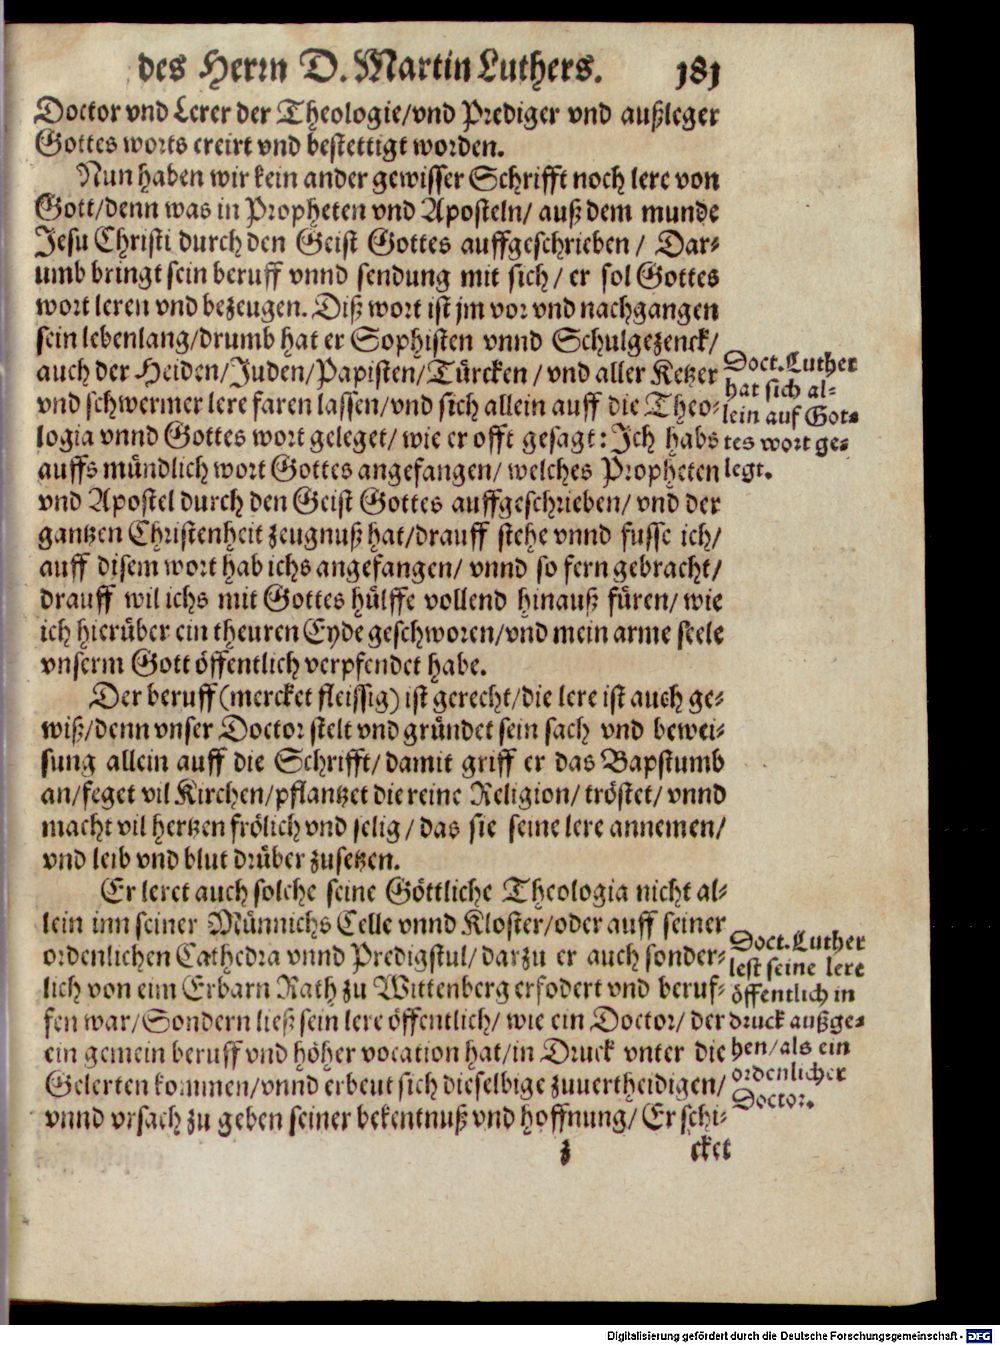 des Herrn D. Martin Luthers. 181
Doctor vnd Lerer der Theologie/vnd Prediger vnd außleger
Gottes worts creirt vnd bestettigt worden.
Nun haben wir kein ander gewisser Schrifft noch lere von
Gott/denn was in Propheten vnd Aposteln/ auß dem munde
Jesu Christi durch den Geist Gottes auffgeschrieben / Dar-
umb bringt sein beruff vnnd sendung mit sich / er sol Gottes
wort leren vnd bezeugen. Diß wort ist jm vor vnd nachgangen
sein lebenlang/drumb hat er Sophisten vnnd Schulgezenck/
auch der Heiden/Juden/Papisten/Türcken / vnd aller Ketzer
vnd schwermer lere faren lassen/vnd sich allein auff die Theo-
logia vnnd Gottes wort geleget/ wie er offt gesagt: Ich habs
auffs mündlich wort Gottes angefangen/ welches Propheten
vnd Apostel durch den Geist Gottes auffgeschrieben/ vnd der
gantzen Christenheit zeugnuß hat/drauff stehe vnnd fusse ich/
auff disem wort hab ichs angefangen/ vnnd so fern gebracht/
drauff wil ichs mit Gottes hülffe vollend hinauß füren/ wie
ich hierüber ein theuren Eyde geschworen/vnd mein arme seele
vnserm Gott öffentlich verpfendet habe.
Doct. Luther
hat sich al-
lein auf Got-
tes wort ge-
legt.
Der beruff (mercket fleissig) ist gerecht/die lere ist auch ge-
wiß/denn vnser Doctor stelt vnd gründet sein sach vnd bewei-
sung allein auff die Schrifft/ damit griff er das Bapstumb
an/feget vil Kirchen/pflantzet die reine Religion/ tröstet/ vnnd
macht vil hertzen frölich vnd selig / das sie seine lere annemen/
vnd leib vnd blut drüber zusetzen.
Er leret auch solche seine Göttliche Theologia nicht al-
lein inn seiner Münnichs Celle vnnd Kloster/oder auff seiner
ordenlichen Cathedra vnnd Predigstul/ darzu er auch sonder-
lich von eim Erbarn Rath zu Wittenberg erfodert vnd beruf-
fen war/Sondern ließ sein lere öffentlich/ wie ein Doctor/ der
ein gemein beruff vnd höher vocation hat/in Druck vnter die
Gelerten kommen/vnnd erbeut sich dieselbige zuuertheidigen/
vnnd vrsach zu geben seiner bekentnuß vnd hoffnung/ Er schi-
Doct. Luther
lest seine lere
öffentlich in
druck außge-
hen/als ein
ordenlicher
Doctor.
z cket
Digitalisierung gefördert durch die Deutsche Forschungsgemeinschaft - DFG